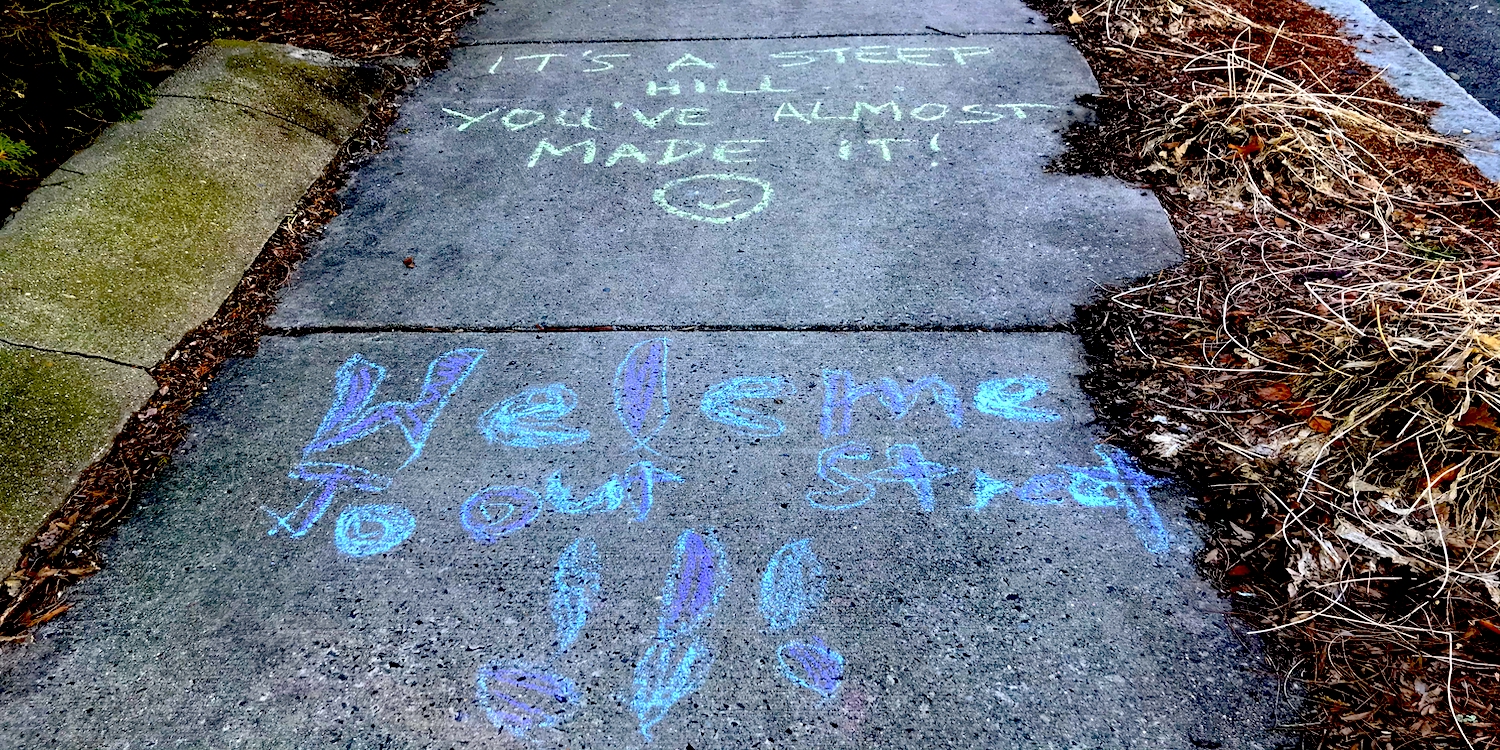 IT'S A STEEP
HILL....
YOU'VE ALMOST
MADE IT!
Welcme
To our Street